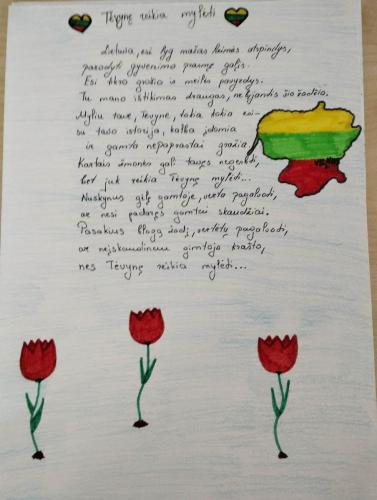 Tėvynę reikia mylėti
Lietuva, esi lyg mažas laimės atspindys,
parodyti gyvenimo prasmę galįs.
Esi tikro grožio ir meilės pavyzdys.
Tu mano ištikimas draugas, nebijantis šio žodžio.
Myliu tave, Tėvyne, tokią kokia esi-
su tavo istorija, kalba įdomia
ir gamta nepaprastai gražia.
Kartais žmonės gali tavęs negerbti,
bet juk reikia Tėvynę mylėti...
Nuskynus gėlę gamtoje, verta pagalvoti,
ar nesi padaręs gamtai skaudžiai.
Pasakius blogą žodį, vertėtų pagalvoti,
ar neįskaudinau gimtojo krašto,
nes Tėvynę reikia mylėti...